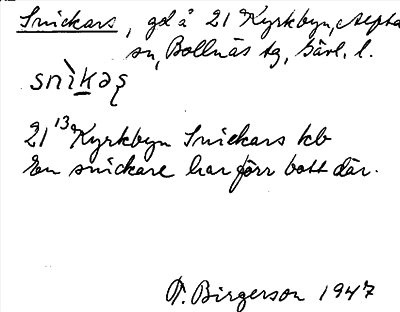 Snickars, gd å 21 Kyrkbyn, Alfta
sn, Bollnäs tg, Gävl. l.
snìkas̨
21¹³ Kyrkbyn Snickars kb
En snickare har förr bott där.
Birgerson 1947